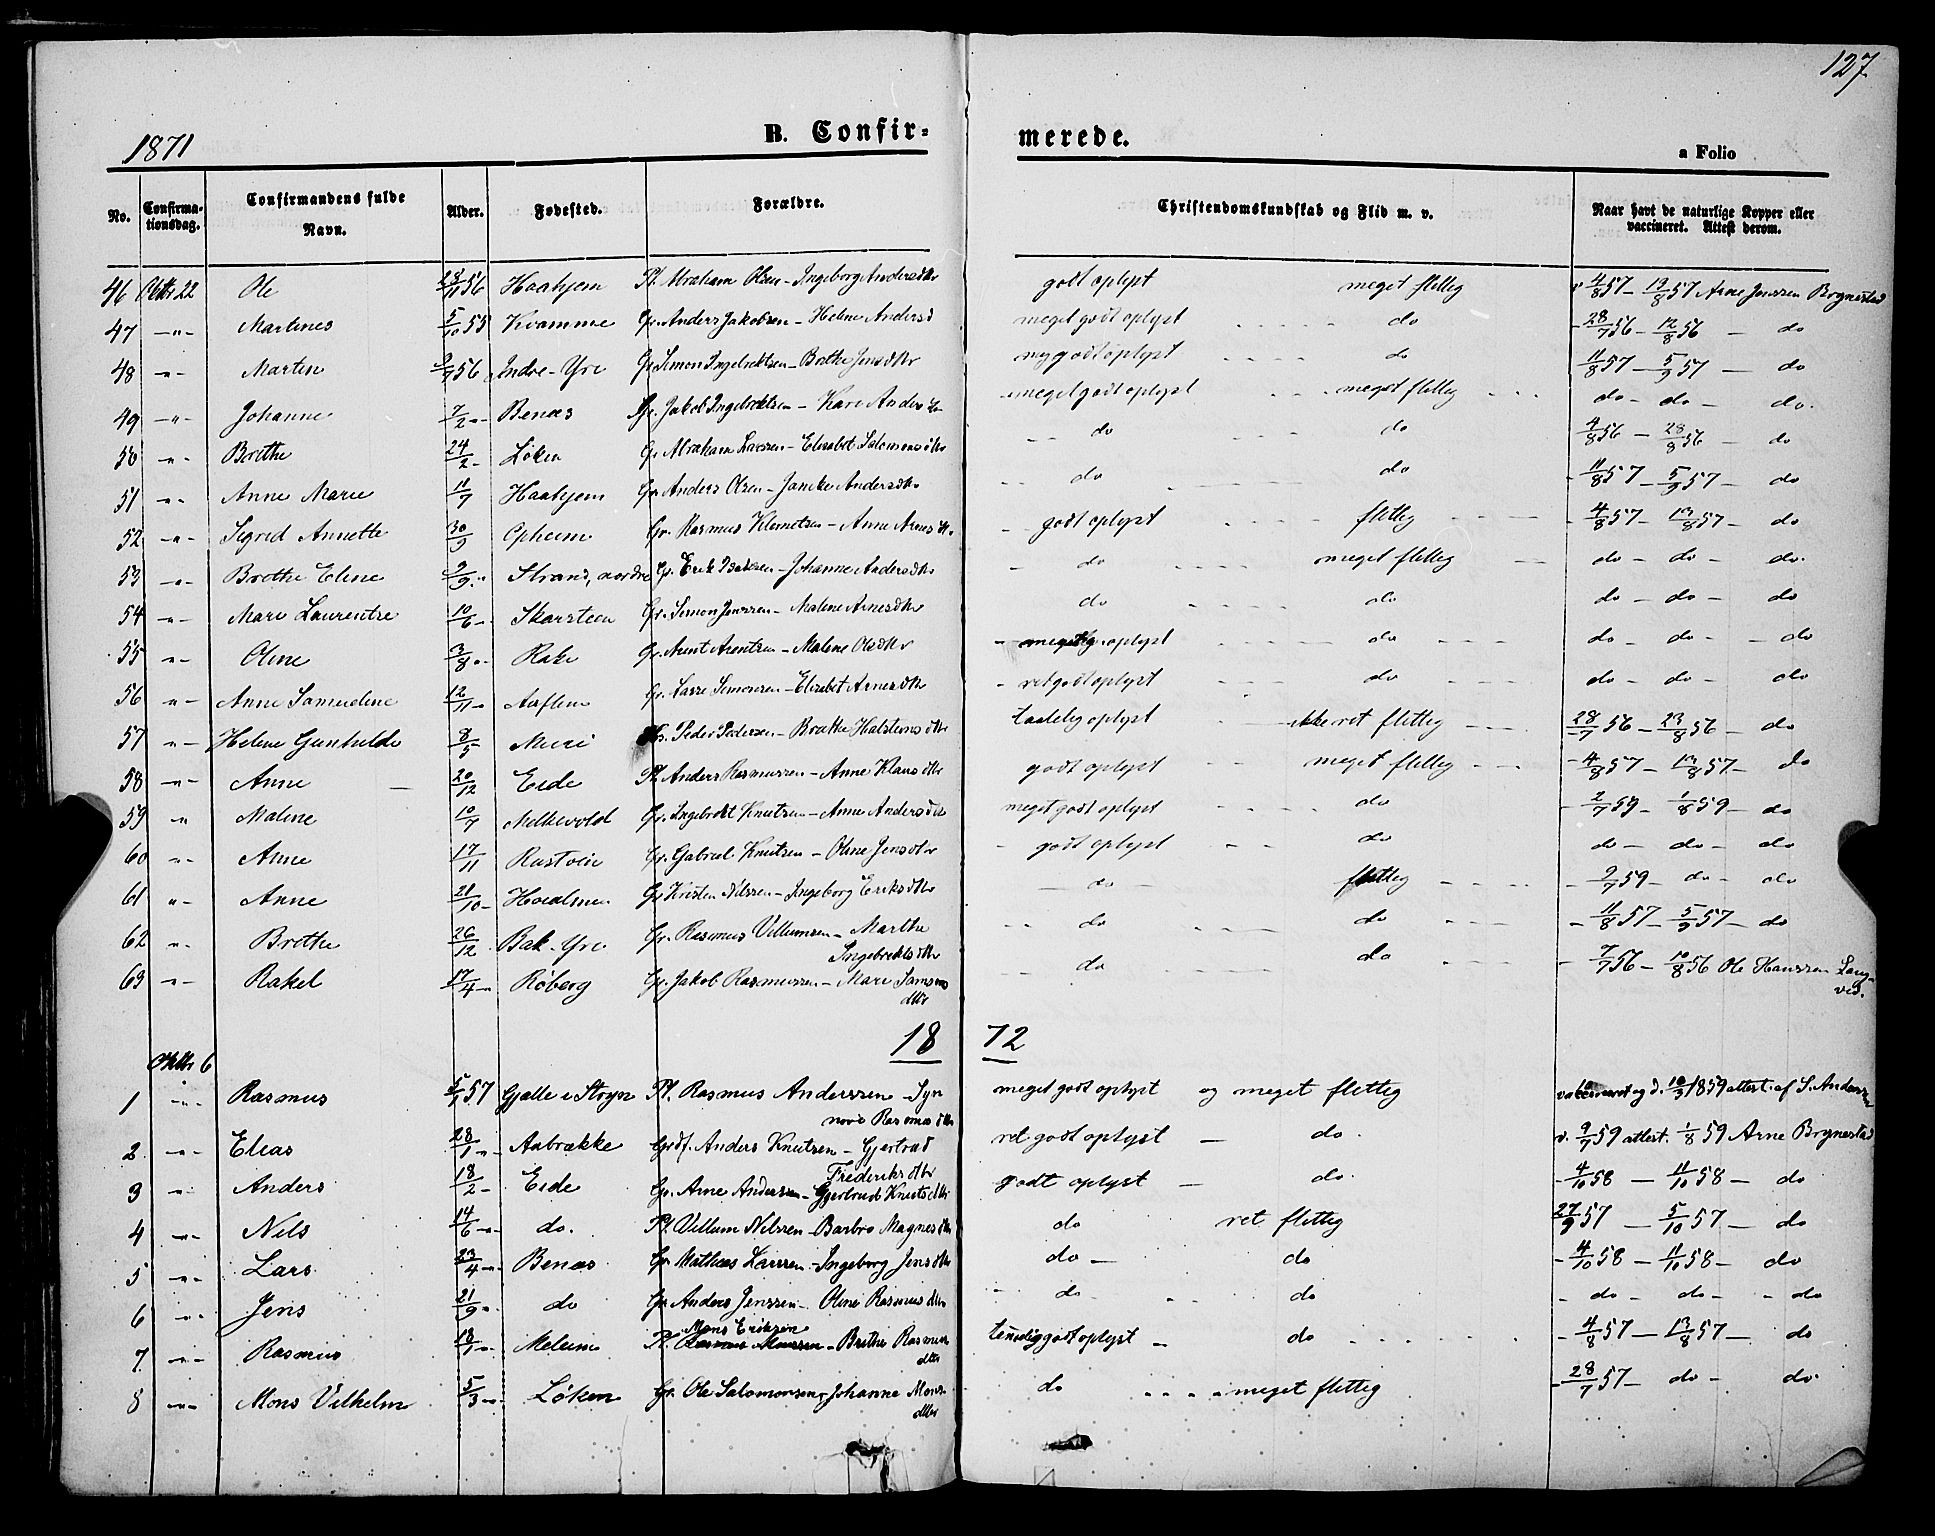 127
1871
B. Confir-
merede.
a Folio
No.
Confirma-
tionsdag.
Confirmandens fulde
Navn.
Alder.
Fødested.
Forældre.
Christendomskundskab og Flid m. v.
Naar havt de naturlige Kopper eller
vaccineret. Attest derom.
46 Oktbr 22 Ole 56 Haahjem Pl. Abraham Olsen - Ingeborg Andersdtr godt oplyst meget flittig 4/8 57 - 13/8 57 Arne Jenssen Brynestad
47 -"- Martines 5/10 55 Kvamme Gr. Anders Jakobsen - Helene Andersd meget godt oplyst do 28/7 56 - 12/8 56 - do
48 -"- Martin 56 Indre-Yri Gr. Simon Ingebrektsen - Brithe Jensdtr godt oplyst do 11/8 57 - 5/9 57 - do
49 -"- Johanne 7/2 - Benæs Gr. Jakob Ingebrektsen - Kari Anders meget godt oplyst meget flittig do - do - do.
50 -"- Brithe 24/2 - Løken Gr. Abraham Larsen - Elisabet Salomonsdtr do do 4/8 56 - 28/8 56 - do
51 -"- Anne Marie 11/7 Haahjem Gr. Anders Olsen - Janike Andersdtr do do 11/8 57 - 5/9 57 - do
52 -"- Sigrid Annette 30/9 Opheim Gr. Rasmus Klemetsen - Anne Arnesdtr. godt oplyst flittig 4/8 57 - 13/8 57 - do
53 -"- Brithe Eline 2/9 - Strand, nordre Gr. Erik Isaksen - Johanne Andersdtr do meget flittig do - do - do.
54 -"- Mari Laurentse 10/6 - Skarsteen Gr. Simon Jenssen - Malene Arnesdtr do do do - do - do
55 -"- Oline 3/8 - Rake Gr. Arent Arentsen - Malene Olsdtr meget g. oplyst do do - do - do
56 -"- Anne Samueline 12/11 - Aaflem Gr. Lasse Simonsen - Elisabet Arnesdtr ret godt oplyst do do - do - do
57 -"- Helene Gunhilde 8/5 Muri Gr. Peder Pedersen - Brithe Halstensdtr taalelig oplyst ikke ret flittig 28/7 56 - 23/8 56 - do
58 -"- Anne 20/12 Eide Pl. Anders Rasmussen - Anne Klausdtr godt oplyst meget flittig 4/8 57 - 13/8 57 - do
59 " Malene 10/7 Melkevold Gr. Ingebrekt Knutsen - Anne Andersdtr meget godt oplyst do 2/7 59 - 1/8 59 - do
60 -"- Anne 17/11 Rustøen Gr. Gabriel Knutsen - Oline Jensdtr godt oplyst do do - do - do
61 "- Anne 21/10 - Gr. Kristen Nilssen - Ingeborg Eriksdtr do flittig 2/7 59 - do - do
62 -"- Brithe 26/12 Bak-Yri Gr. Rasmus Villumsen - Marthe do do 11/8 57 - 5/9 57 - do
Ingebrektsdtr
63 -"- Rakel 17/4 - Røberg Gr. Jakob Rasmussen - Mari Samsons do do 7/7 56 - 10/8 56 Ole Hanssen Lang-
dttr ved.
1872
Oktbr 6
1 -"- Rasmus 57 Gjølle i Stryn Pl. Rasmus Anderssen - Syn meget godt oplyst og meget flittig vakcineret og d. 10/9 1859 attest. af S. Anderssen
nøve Rasmusdtr
2 -"- Elias 28/1 - Aabrække Grdf. Anders Knutsen - Gjertrud ret godt oplyst - do. v. 9/7 59 attest. 1/8 59 Arne Brynestad
Frederiksdtr
3 -"- Anders 18/2 - Eide Gr. Arne Anderssen - Gjertrud Knutsdtr godt oplyst - do. 4/10 58 - 11/10 58 - do
4 -"- Nils 14/6 - do. Pl. Villum Nilssen - Barbro Magnesdtr do ret flittig 27/9 57 - 5/10 57 - do
5 -"- Lars 23/4 - Benæs Gr. Mathias Larssen - Ingeborg Jensdtr do - do 4/10 58 - 11/10 58 - do
6 -"- Jens 21/9 - do Gr. Anders Jenssen - Oline Rasmusdttr do - do do - do - do
Mons Eriksen
7 -"- Rasmus 18/1 - Meleim Pl. - Brithe Rasmus temmelig godt oplyst - do 4/8 57 - 13/8 57 - do
dttr
8 -"- Mons Vilhelm 5/3 - Løken Gr. Ole Salomonsen - Johanne Mons- do meget flittig 28/7 57 - do - do.
dttr